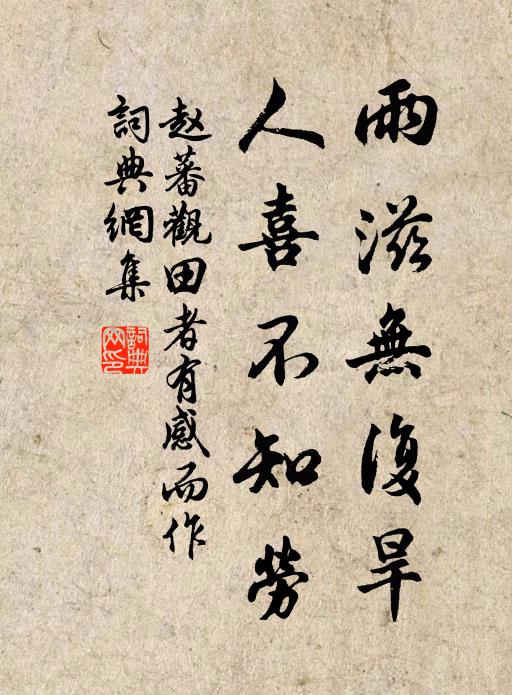 雨滋無復旱
人喜不知勞
赵蕃觀田者有感而作
詞典網集
詞典網印